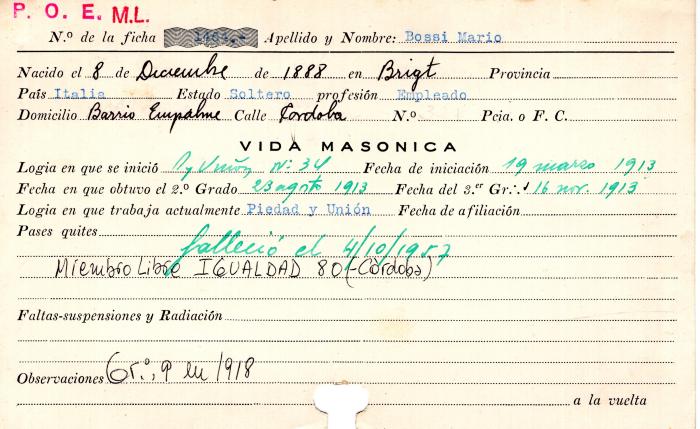 P. O. E. M.L.
N.º de la ficha 1464.- Apellido y Nombre: Bossi Mario
Nacido el 8 de Diciembre de 1888 en Brigt Provincia
País Italia Estado Soltero profesión Empleado
Domicilio Barrio Empalme Calle Cordoba N.º Pcia. o F. C.
VIDA MASONICA
Logia en que se inició P y Unión Nº 34 Fecha de iniciación 19 marzo 1913
Fecha en que obtuvo el 2.º Grado 23 agosto 1913 Fecha del 3.er Gr∴ 16 nov. 1913
Logia en que trabaja actualmente Piedad y Unión Fecha de afiliación
Pases quites
falleció el 4/10/1957
Miembro Libre IGUALDAD 80 (Córdoba)
Faltas-suspensiones y Radiación
Observaciones Gr.º, 9 en 1918
a la vuelta